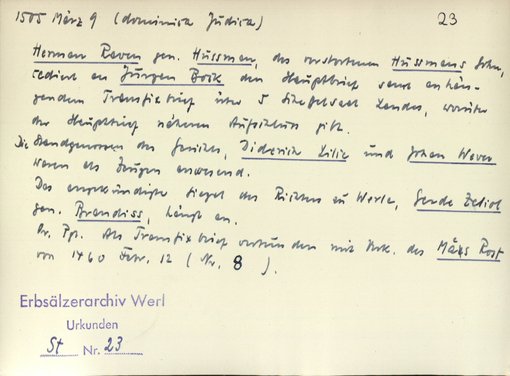 1505 März 9 (dominica Judica) 23
Herman Raven gen. Hussman, des verstorbenen Hussmans Sohn,
cediert an Jurgen Bock den Hauptbrief samt anhän-
gendem Transfixbrief über 5 Landes, worüber
der Hauptbrief näheren Aufschluss gibt.
Die Standgenossen des Gerichts, Diderich Lilie und Johan Wever
waren als Zeugen anwesend.
Das angekündigte Siegel des Richters zu Werle, Gerde
gen. Brandiss, hängt an.
Or. Pgt. Als Transfixbrief verbunden mit Urk. des
von 1460 Febr. 12 (Nr. 8).
Erbsälzerarchiv Werl
Urkunden
St Nr. 23